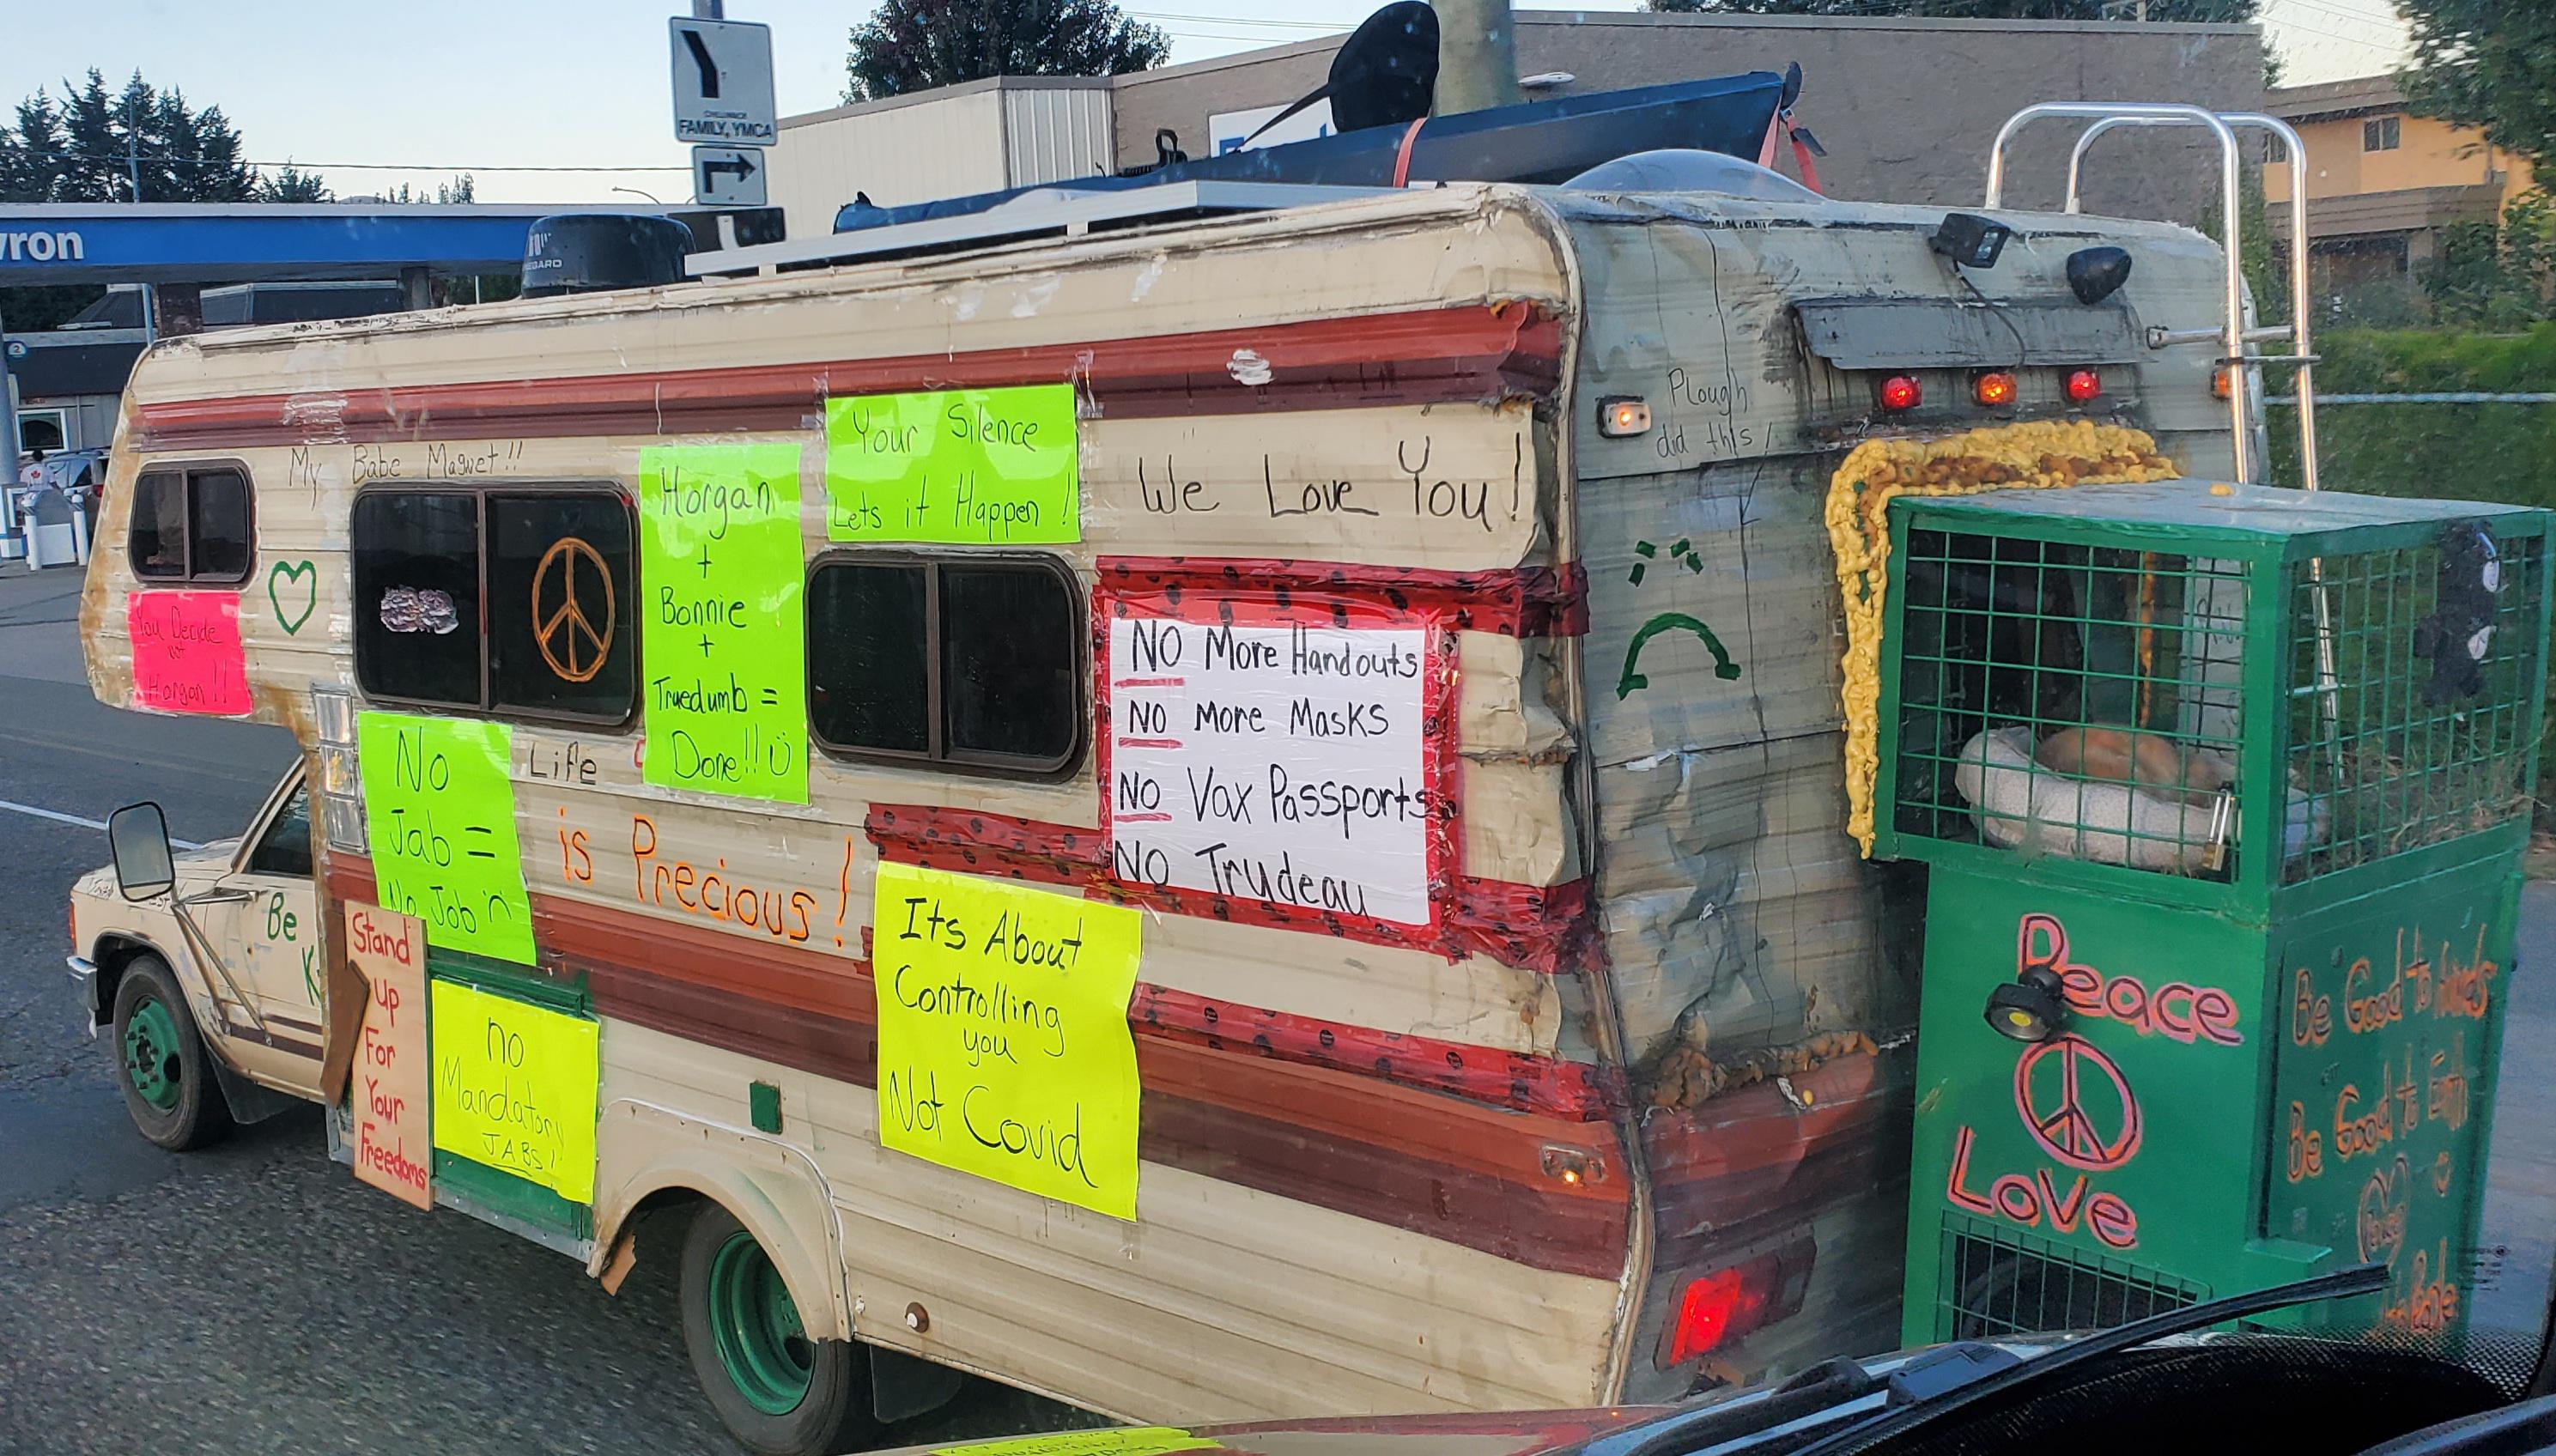 CHILLIWACK
FAMILY, YMCA
vron
2
My Babe Magnet!!
You Decide
not
Horgan!!
Horgan
+
Bonnie
+
Truedumb =
Done!!
Your Silence
Lets it Happen!
We Love You!
Plough
did this!
NO More Handouts
NO More Masks
NO Vax Passports
NO Trudeau
No
Jab =
No Job
Life
is Precious!
Be
K
Stand
up
For
Your
Freedoms
no
Mandatory
JABS!
Its About
Controlling
you
Not Covid
Peace
Love
Be Good to
Be Good to